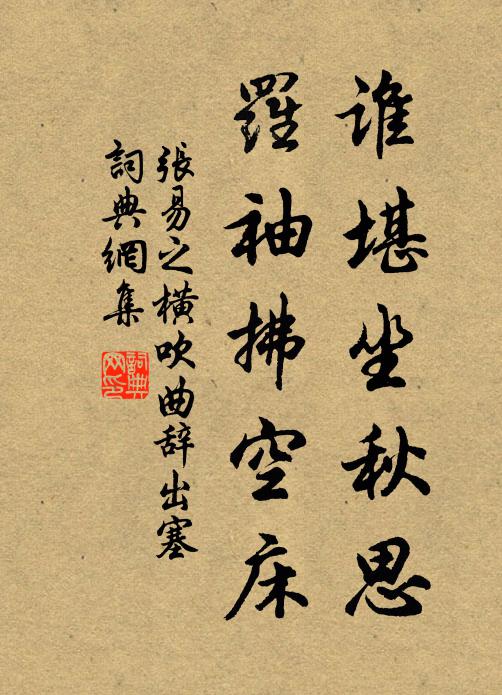 谁堪坐秋思
羅袖拂空床
張易之橫吹曲辞出塞
詞典網集
詞典
网印